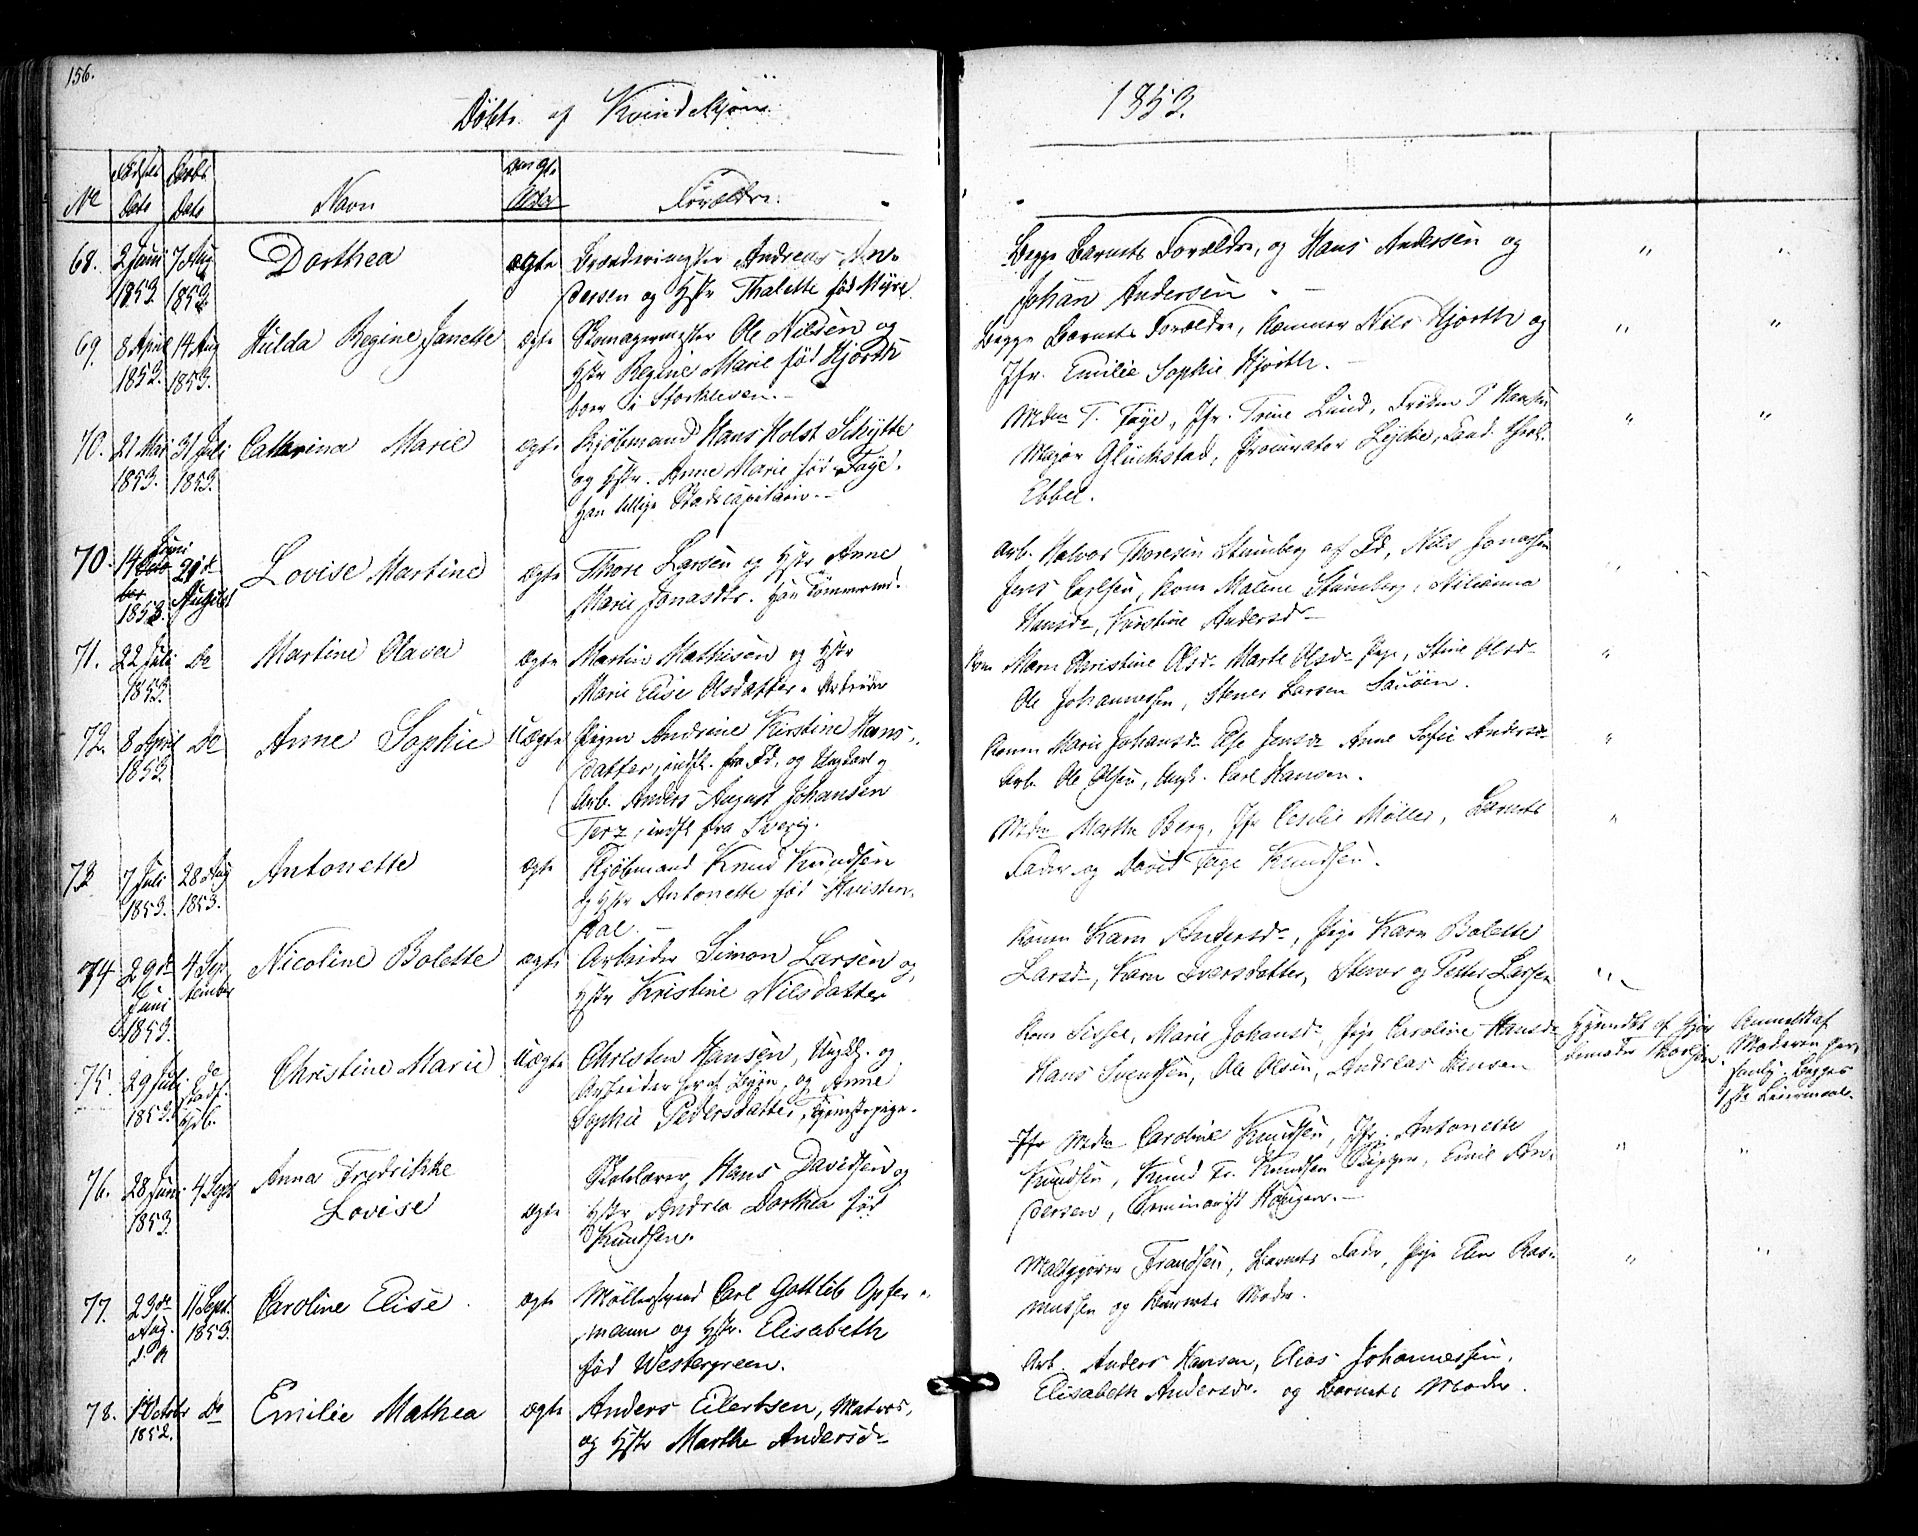 156.
Døbte af Kvindekjøn
1853.
No
Fødsels Date
Daabs Date
Navn
om ægte
Forældre.
68. 2 Juni 1853 7 Aug 1853 Dorthea ægte Brænderimester Andreas An-
dersen og Hstr Thalette født Myre.
Begge Barnets Forældre, og Hans Andersen og
Johan Andersen
69. 8 April 1853. 14 Aug 1853. Hulda Regine Janette ægte Skomagermester Ole Nilsen og
Hstr Regine Marie født Hjorth
boer i Storkleven.
Begge Barnets Forældre, Kæmner Nils Hjorth og
Jfr. Emilie Sophie Hjorth.
70. 21 Mai 1853. 31 Juli 1853. Cathrina Marie ægte Kjøbmand Hans Holst Schytte
og Hstr. Anne Marie født Faye.
han tillige Stadscapitain.
Mdm T. Faye, Jfr. Trine Lund, Frøken P Hansen
Major Glückstad, Procurator Lycke, Cand. theol.
Ebbel.
70. 14 Juni 1853. 21de August Lovise Martine ægte Thore Larsen og Hstr Anne
Marie Jonasdtr. han Tømmermd.
Arb. Halvor Thoresen Stumberg af Id, Nils Jonassen
Jens Carlsen, Kone Malene Stumberg, Nilianna
Hansdr, Kirstine Andersdr
71. 22 Juli 1853. Do Martine Olava ægte Martin Mathisen og Hstr
Marie Elise Olsdatter.
Kone Maren Christine Olsdr Marte Olsdr Pige, Stine Olsdr
Ole Johannessen, Stener Larsen Sauøen.
72. 8 April 1853. Do Anne Sophie Uægte Pigen Andrine Kirstine Hans-
datter, indfl. fra Id, og Ungkarl og
Arb. Anders August Johansen
Terz, indfl fra Sverig.
Konen Marie Johansdr Else Jensdr Anne Sofie Andersdr
Arb. Ole Olsen, Ungk. Carl Hansen.
73 7 Juli 1853. 28 Aug 1853. Antonette ægte Kjøbmand Knud Knudsen
og Hstr Antonette født Kristen-
dal.
Mdm Marthe Berg, Jfr Cecilie Møller, Barnets
Fader og David Faye Knudsen.
74 29de Juni 1853. 4 September Nicoline Bolette ægte Arbeider Simon Larsen og
Hstr Kristine Nilsdatter
Konen Karn Andersdr, Pige Karn Bolette
Larsdr, Karn Iversdatter, Stener og Petter Larsen
75. 29 Juli 1853. do Christine Marie Uægte Christen Hansen, Ungk. og
Arbeider her af Byen, og Anne
Sophie Pedersdatter, Tjenstepige.
Kone Sissel, Marie Johansdr, Pige Caroline Hansdr
Hans Svendsen, Ole Olsen, Andreas Stensen
Hjemdbt af Gjor
demoder Thorsen.
Anmeldt af
Moderen per-
sonlig. Begges
1ste Leiermaal.
76. 28 Juni 1853. 4 Sept Anna Fredrikke
Lovise ægte Skolelærer Hans Davidsen og
Hstr Andrea Dorthea født
Knudsen.
Mdm Caroline Knudsen, Jfr. Antonette
Knudsen, Knud Fr. Knudsen Skipper, Emil An-
dersen, Seminarist
77. 29de Aug. 11 Sept. 1853. Caroline Elise. ægte Møllersvend Carl Gottlib Opfer-
mann og Hstr. Elisabeth
født Westergreen.
Maltgjører Frandsen, Barnets Fader, Pige Elen Ras-
mussen og Barnets Moder.
78. 1 October 1852. Do Emilie Mathea ægte Anders Eilertsen, Matros,
og Hstr Marthe Andersdr
Arb. Anders Hansen, Elias Johannessen,
Elisabeth Andersdr. og Barnets Moder.